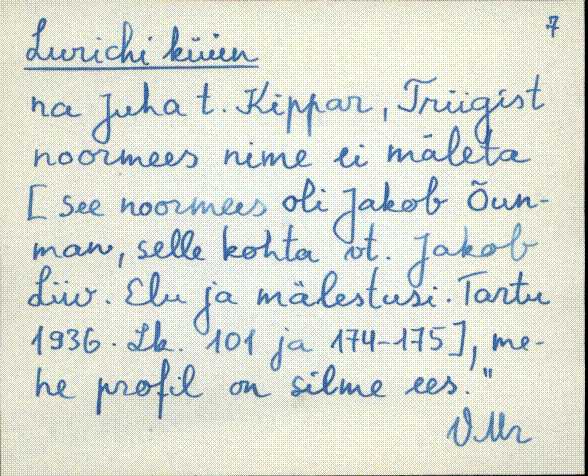 7
Lurichi küün
na Juhat. Kippar, Triigist
noormees nime ei mäleta
[see noormees oli Jakob Õun-
man, selle kohta vt. Jakob
Liiv. Elu ja mälestusi. Tartu
1936. Lk. 101 ja 174-175], me-
he profil on silme ees."